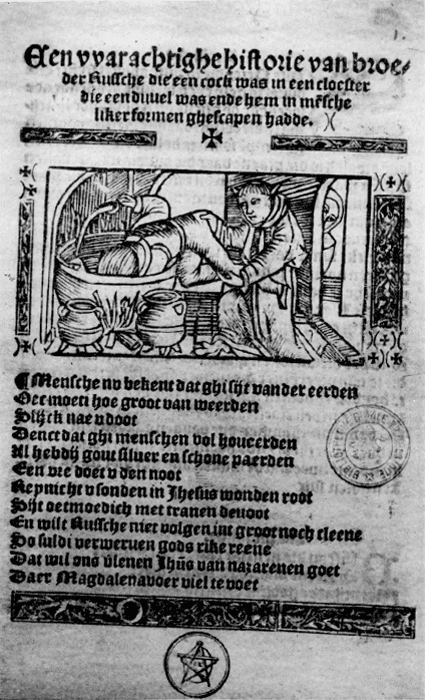 Een vvarachtighe historie van broe-
der Russche die een cock was in een clooster
die een duuel was ende hem in mēsche
liker formen ghescapen hadde.
Mensche nv bekent dat ghi sijt van der eerden
Oetmoen hoe groot van weerden
Slijck nae v doot
Denct dat ghi menschen vol houeerden
Al hebdij gout siluer en schone paerden
Een vre doet v den noot
Reynicht v sonden in Jhesus wonden root
Sijt oetmoedich met tranen deuoot
En wilt Russche niet volgen int groot noch cleene
So suldi verweruen gods rike reene
Dat wil ons vlenen Jhūs van nazarenen goet
Daer Magdalena voer viel te voet